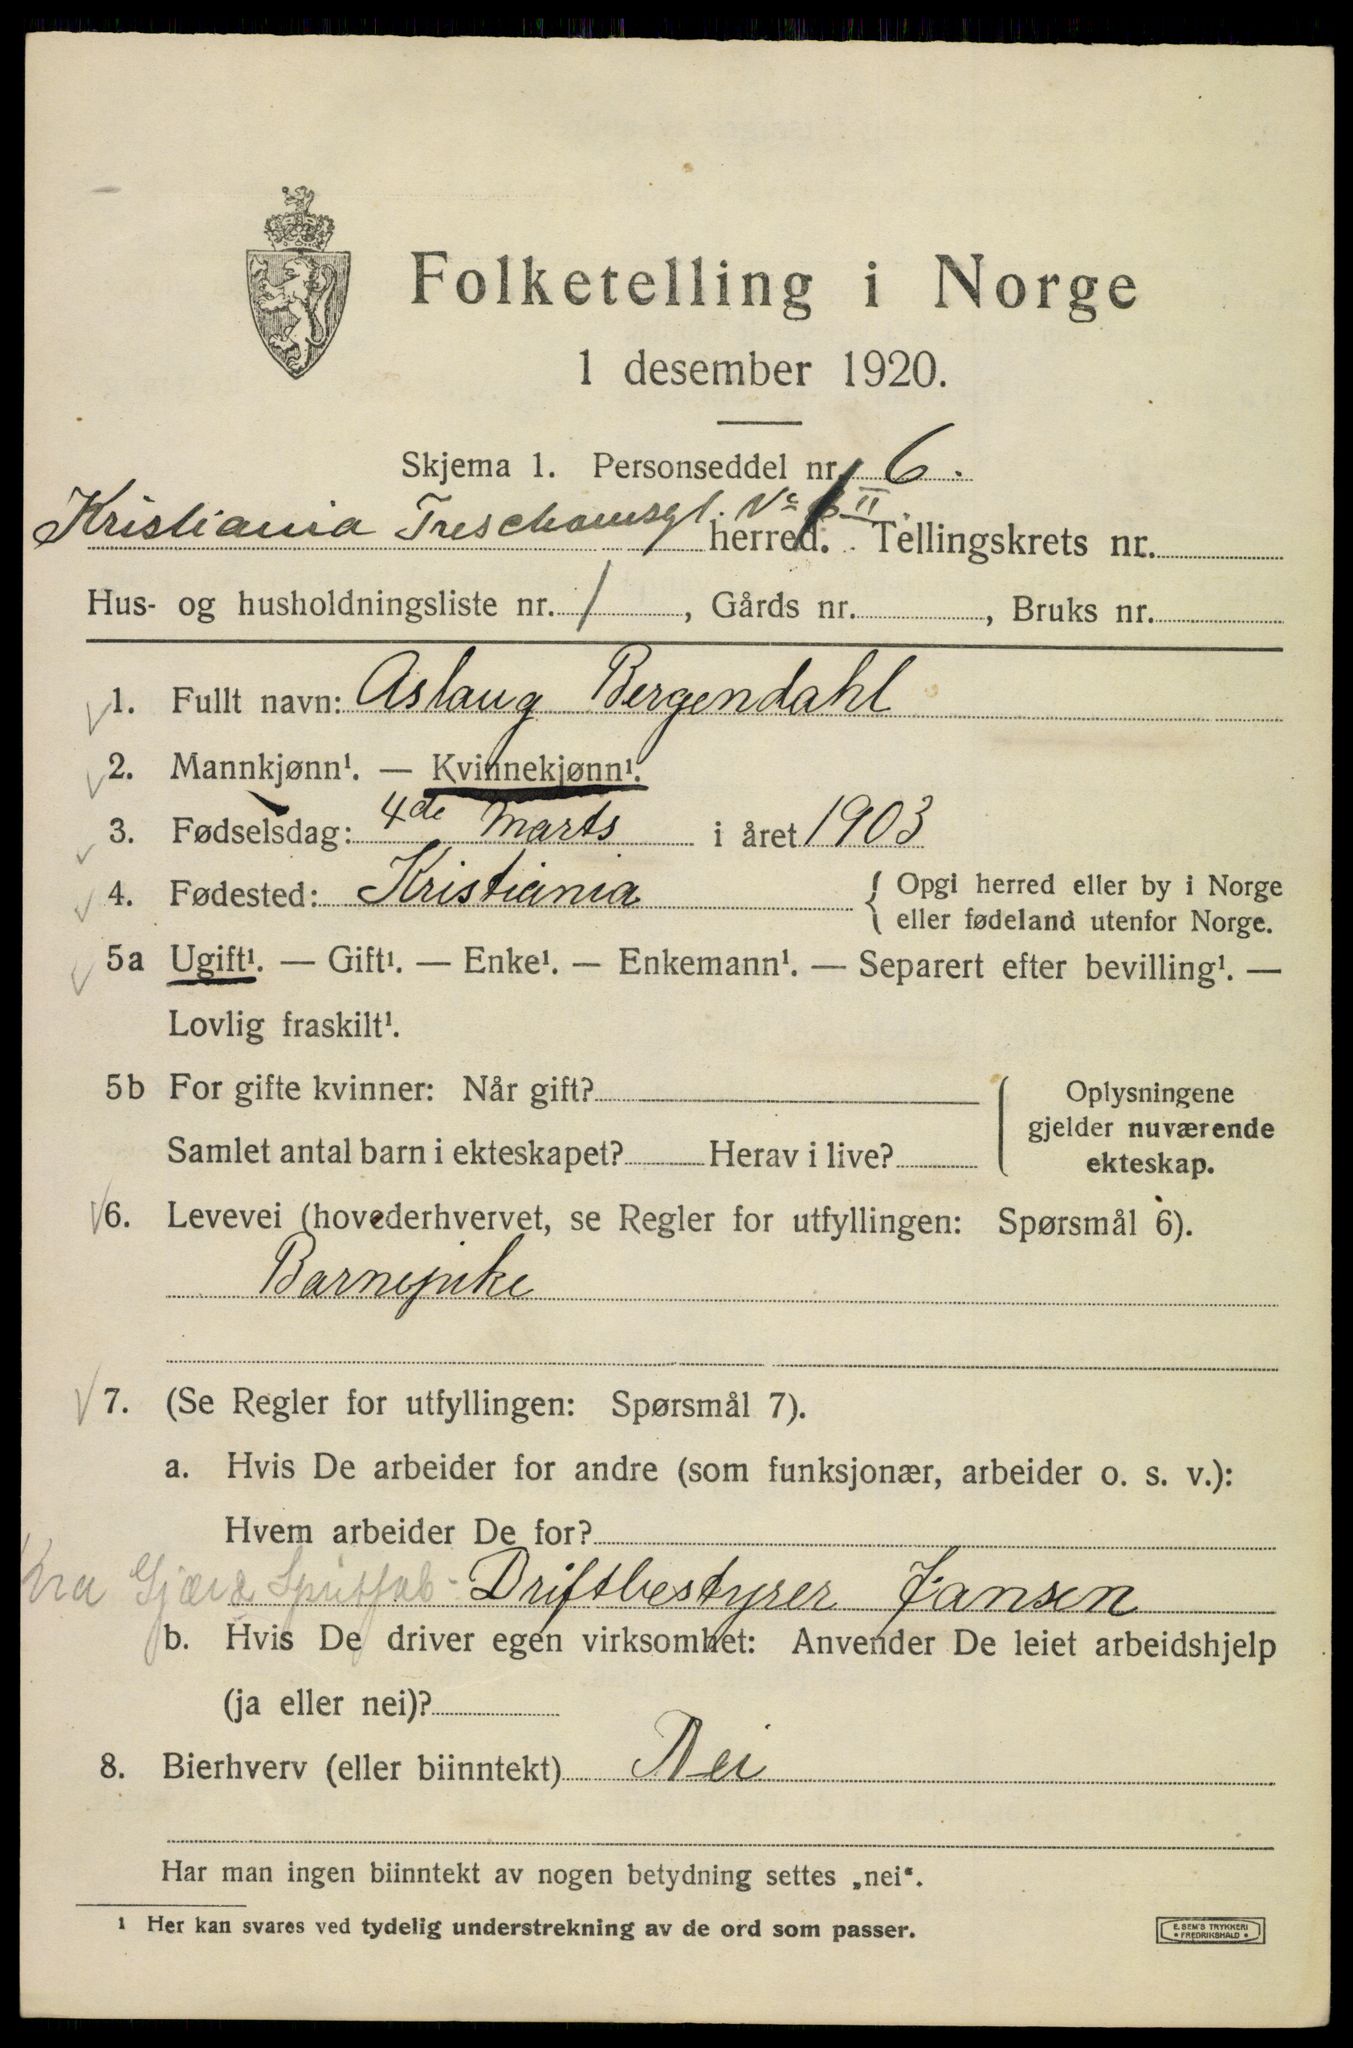 Folketelling i Norge
1 desember 1920.
Skjema 1. Personseddel nr. 6.
Kristiania Treschowsgt. No II herred. Tellingskrets nr.
Hus- og husholdningsliste nr. 1, Gårds nr. , Bruks nr.
1. Fullt navn: Aslaug Bergendahl
2. Mannkjønn¹. — Kvinnekjønn¹.
3. Fødselsdag: 4de Marts i året 1903
4. Fødested: Kristiania { Opgi herred eller by i Norge
eller fødeland utenfor Norge.
5a Ugift¹. — Gift¹. — Enke¹. — Enkemann¹. — Separert efter bevilling¹. —
Lovlig fraskilt¹.
5b For gifte kvinner: Når gift?
Samlet antal barn i ekteskapet? Herav i live?
Oplysningene
gjelder nuværende
ekteskap.
6. Levevei (hovederhvervet, se Regler for utfyllingen: Spørsmål 6).
Barnepike
7. (Se Regler for utfyllingen: Spørsmål 7).
a. Hvis De arbeider for andre (som funksjonær, arbeider o. s. v.):
Hvem arbeider De for?
Kra Gjær & Spritfab- Driftbestyrer Jansen
b. Hvis De driver egen virksomhet: Anvender De leiet arbeidshjelp
(ja eller nei)?
8. Bierhverv (eller biinntekt) Nei
Har man ingen biinntekt av nogen betydning settes „nei“.
1 Her kan svares ved tydelig understrekning av de ord som passer.
E. SEM'S TRYKKERI
• FREDRIKSHALD •